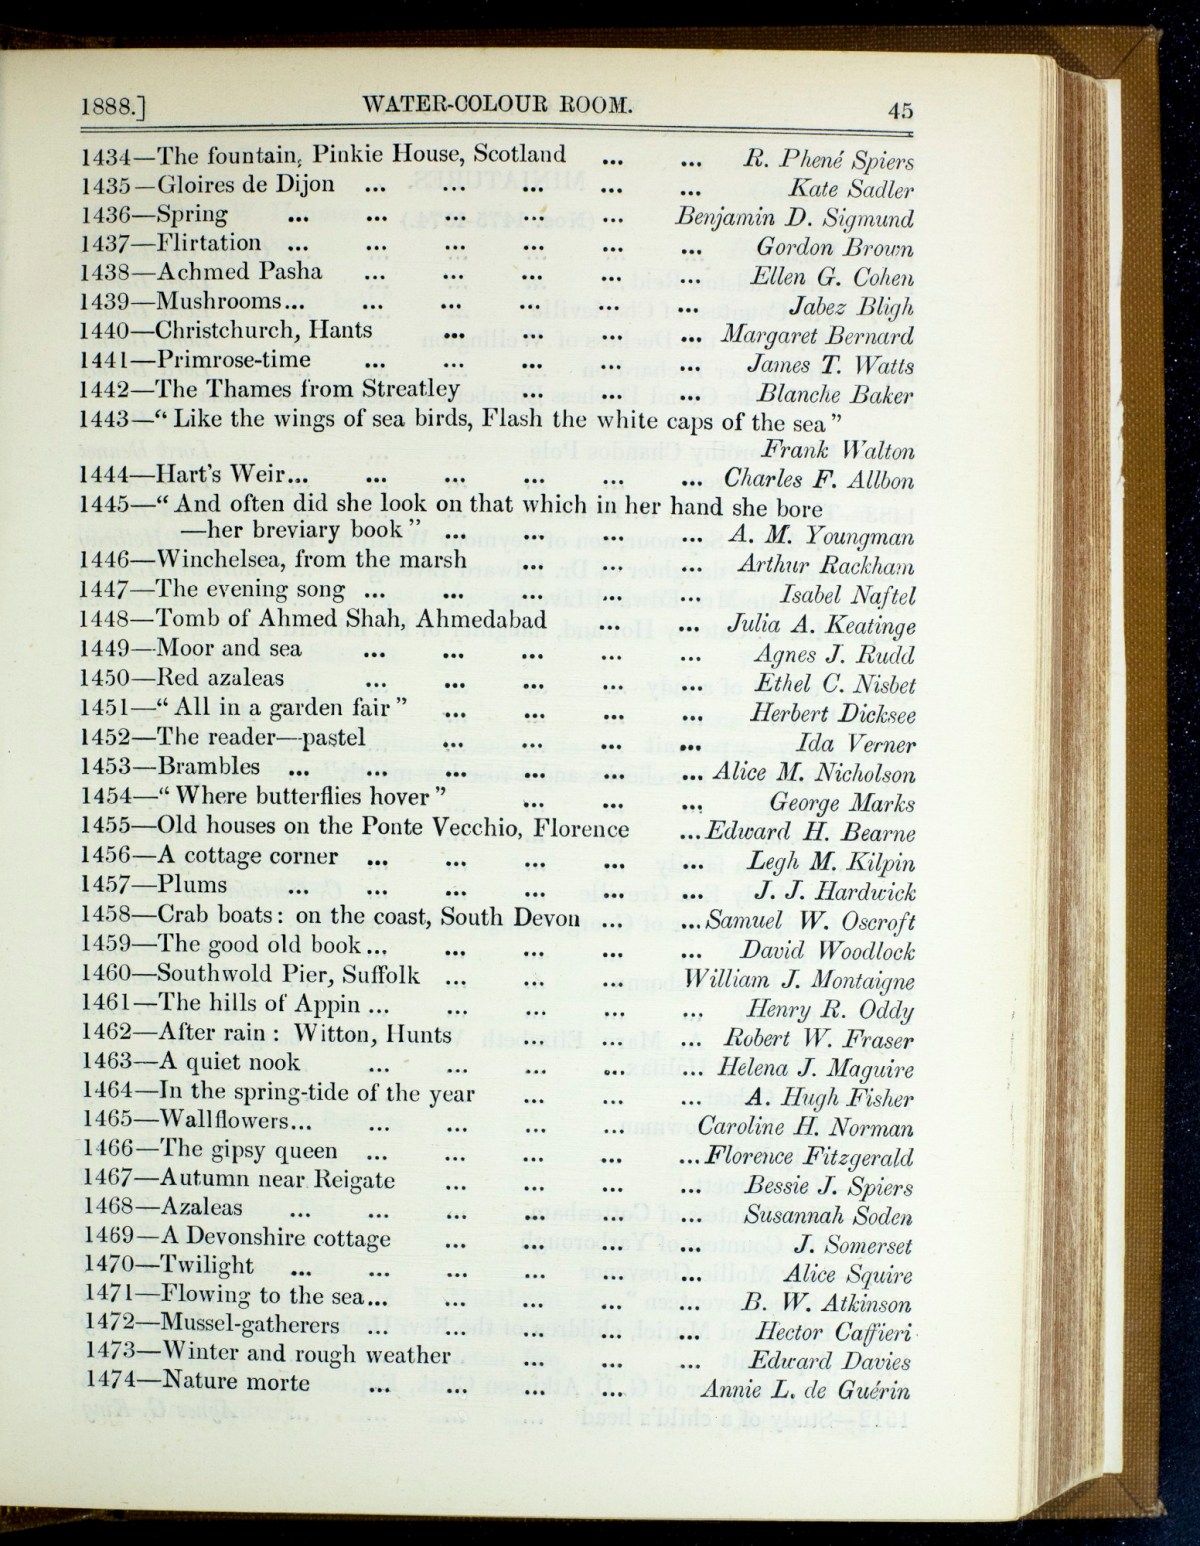 1888.] WATER-COLOUR ROOM. 45
1434—The fountain, Pinkie House, Scotland ... ... R. Phené Spiers
1435—Gloires de Dijon ... ... ... ... ... Kate Sadler
1436—Spring ... ... ... ... ... Benjamin D. Sigmund
1437—Flirtation ... ... ... ... ... ... Gordon Brown
1438—Achmed Pasha ... ... ... ... ... Ellen G. Cohen
1439—Mushrooms... ... ... ... ... ... Jabez Bligh
1440—Christchurch, Hants ... ... ... ... Margaret Bernard
1441—Primrose-time ... ... ... ... ... James T. Watts
1442—The Thames from Streatley ... ... ... Blanche Baker
1443—“ Like the wings of sea birds, Flash the white caps of the sea ”
Frank Walton
1444—Hart's Weir... ... ... ... ... ... Charles F. Allbon
1445—“ And often did she look on that which in her hand she bore
—her breviary book ” ... ... ... ... A. M. Youngman
1446—Winchelsea, from the marsh ... ... ... Arthur Rackham
1447—The evening song ... ... ... ... ... Isabel Naftel
1448—Tomb of Ahmed Shah, Ahmedabad ... ... Julia A. Keatinge
1449—Moor and sea ... ... ... ... ... Agnes J. Rudd
1450—Red azaleas ... ... ... ... ... Ethel C. Nisbet
1451—“ All in a garden fair ” ... ... ... ... Herbert Dicksee
1452—The reader—pastel ... ... ... ... Ida Verner
1453—Brambles ... ... ... ... ... ... Alice M. Nicholson
1454—“ Where butterflies hover ” ... ... ... George Marks
1455—Old houses on the Ponte Vecchio, Florence ... Edward H. Bearne
1456—A cottage corner ... ... ... ... ... Legh M. Kilpin
1457—Plums ... ... ... ... ... ... J. J. Hardwick
1458—Crab boats: on the coast, South Devon ... ... Samuel W. Oscroft
1459—The good old book... ... ... ... ... David Woodlock
1460—Southwold Pier, Suffolk ... ... ... William J. Montaigne
1461—The hills of Appin... ... ... ... ... Henry R. Oddy
1462—After rain : Witton, Hunts ... ... ... Robert W. Fraser
1463—A quiet nook ... ... ... ... ... Helena J. Maguire
1464—In the spring-tide of the year ... ... ... A. Hugh Fisher
1465—Wallflowers... ... ... ... ... Caroline H. Norman
1466—The gipsy queen ... ... ... ... ... Florence Fitzgerald
1467—Autumn near Reigate ... ... ... ... Bessie J. Spiers
1468—Azaleas ... ... ... ... ... ... Susannah Soden
1469—A Devonshire cottage ... ... ... ... J. Somerset
1470—Twilight ... ... ... ... ... ... Alice Squire
1471—Flowing to the sea... ... ... ... ... B. W. Atkinson
1472—Mussel-gatherers ... ... ... ... ... Hector Caffieri
1473—Winter and rough weather ... ... ... Edward Davies
1474—Nature morte ... ... ... ... Annie L. de Guérin